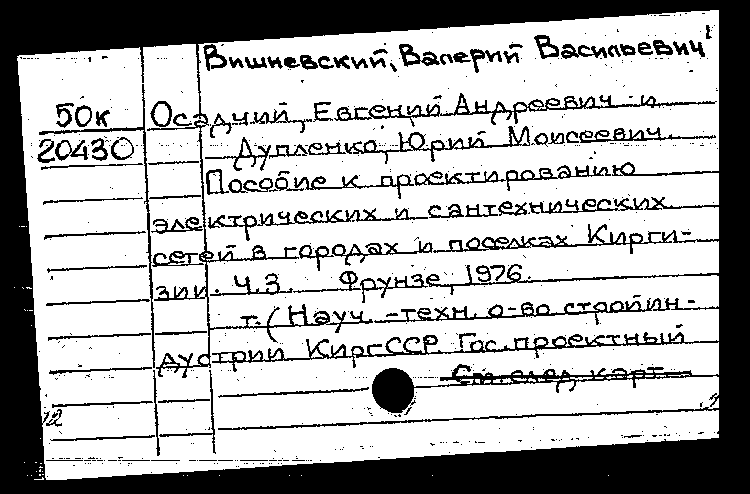 Вишневский, Валерий Васильевич
50к Осадчий, Евгений Андреевич и
20430 Дупленко, Юрий Моисеевич.
Пособие к проектированию
электрических и сантехнических
сетей в городах и поселках Кирги-
зии. Ч.3. Фрунзе, 1976.
т. (Науч.-техн. о-во стройин-
дустрии КиргССР. Гос. проектный
См. след. карт.
12